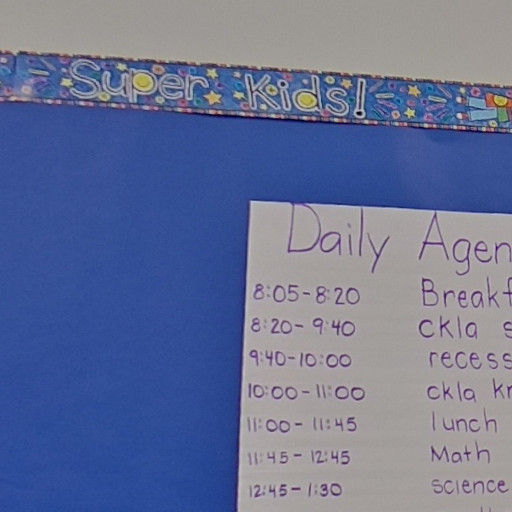 Super Kids!
Daily Agen
8:05-8:20 Breakf
8:20-9:40 ckla s
9:40-10:00 recess
10:00-11:00 ckla kn
11:00-11:45 lunch
11:45-12:45 Math
12:45-1:30 science